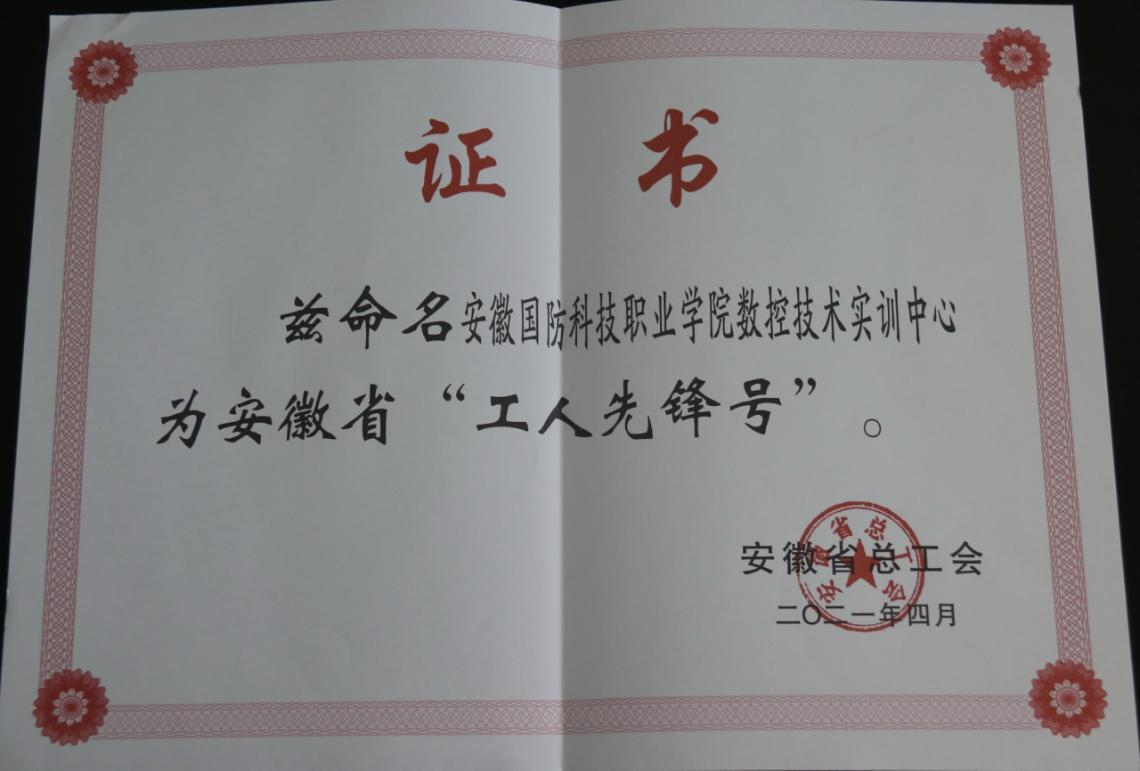 证 书
兹命名安徽国防科技职业学院数控技术实训中心
为安徽省“工人先锋号”。
安徽省总工会
安徽省总工会
二〇二一年四月